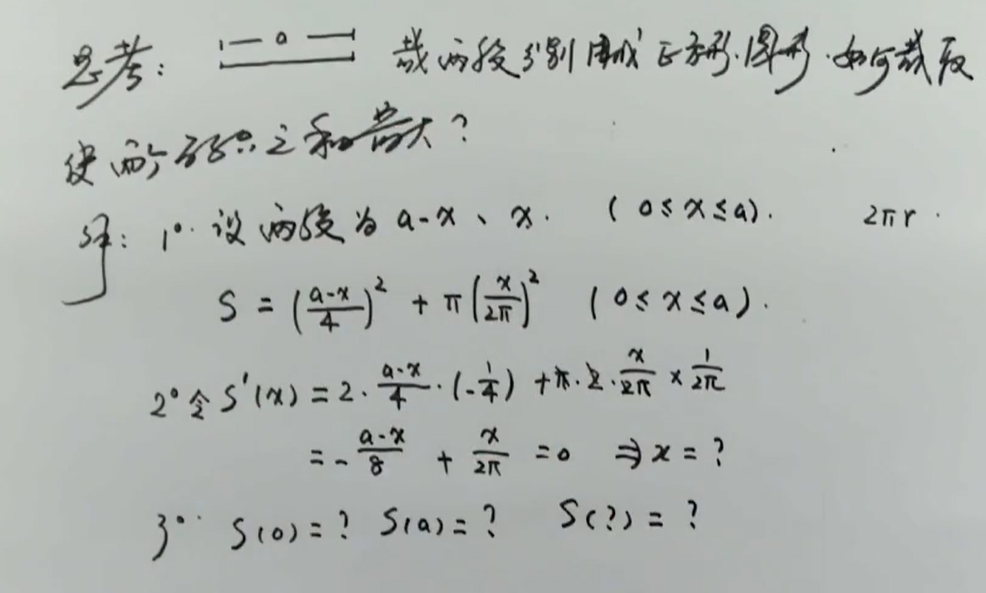 思考: |— a —| 截两段分别围成正方形、圆形.如何截取
使两个面积之和最大?
解: 1° 设两段为 a-x、x. (0≤x≤a). 2πr.
S = (\frac{a-x}{4})^2 + π(\frac{x}{2π})^2 (0≤x≤a).
2° 令S'(x) = 2·\frac{a-x}{4}·(-\frac{1}{4}) + π·2·\frac{x}{2π}×\frac{1}{2π}
= -\frac{a-x}{8} + \frac{x}{2π} = 0 ⇒ x = ?
3° S(0) = ? S(a) = ? S(?) = ?